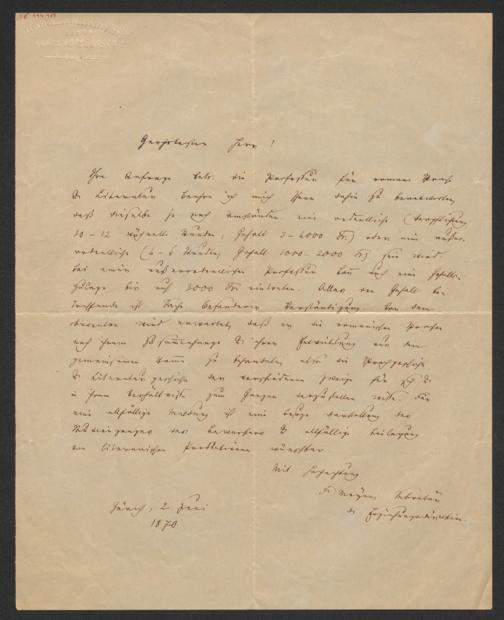 Geehrtester Herr!
Ihre Anfrage betr. die Professur für roman. Sprache
& Literatur beehre ich mich Ihnen dahin zu beantworten,
daß dieselbe je nach Umständen eine ordentliche (Verpflichtung
10 - 12 wöchentl. Stunden, Gehalt 3-4000 Fr.) oder eine außer-
ordentliche (4-6 Stunden, Gehalt 1000-2000 Fr.) sein wird
bei einer außerordentlichen Professur kann auch eine Gehalts-
zulage bis auf 3000 Fr. eintreten. Alles den Gehalt be-
treffende ist Sache besonderer Verständigung. Von dem
Bewerber wird erwartet, daß er die romanischen Sprachen
nach ihrem Zusammenhange & ihrer Entwicklung aus dem
gemeinsamen Stamme zu behandeln, also die Sprachgeschichte
& Literaturgeschichte der verschiedenen Zweige für sich &
in ihrem Verhältnisse zum Ganzen darzustellen wisse. Für
eine allfällige Meldung ist eine kurze Darstellung des
Studienganges des Bewerbers & allfällige Beilegung
von literarischen Produktionen wünschbar.
Mit Hochachtung
Fr. Meyer, Sekretär
der Erziehungsdirektion
Zürich, 2. Juni
1870